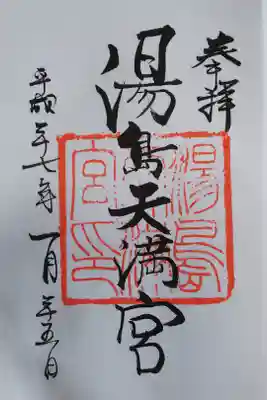 奉拝
湯島天満宮
平成二十七年一月二十五日